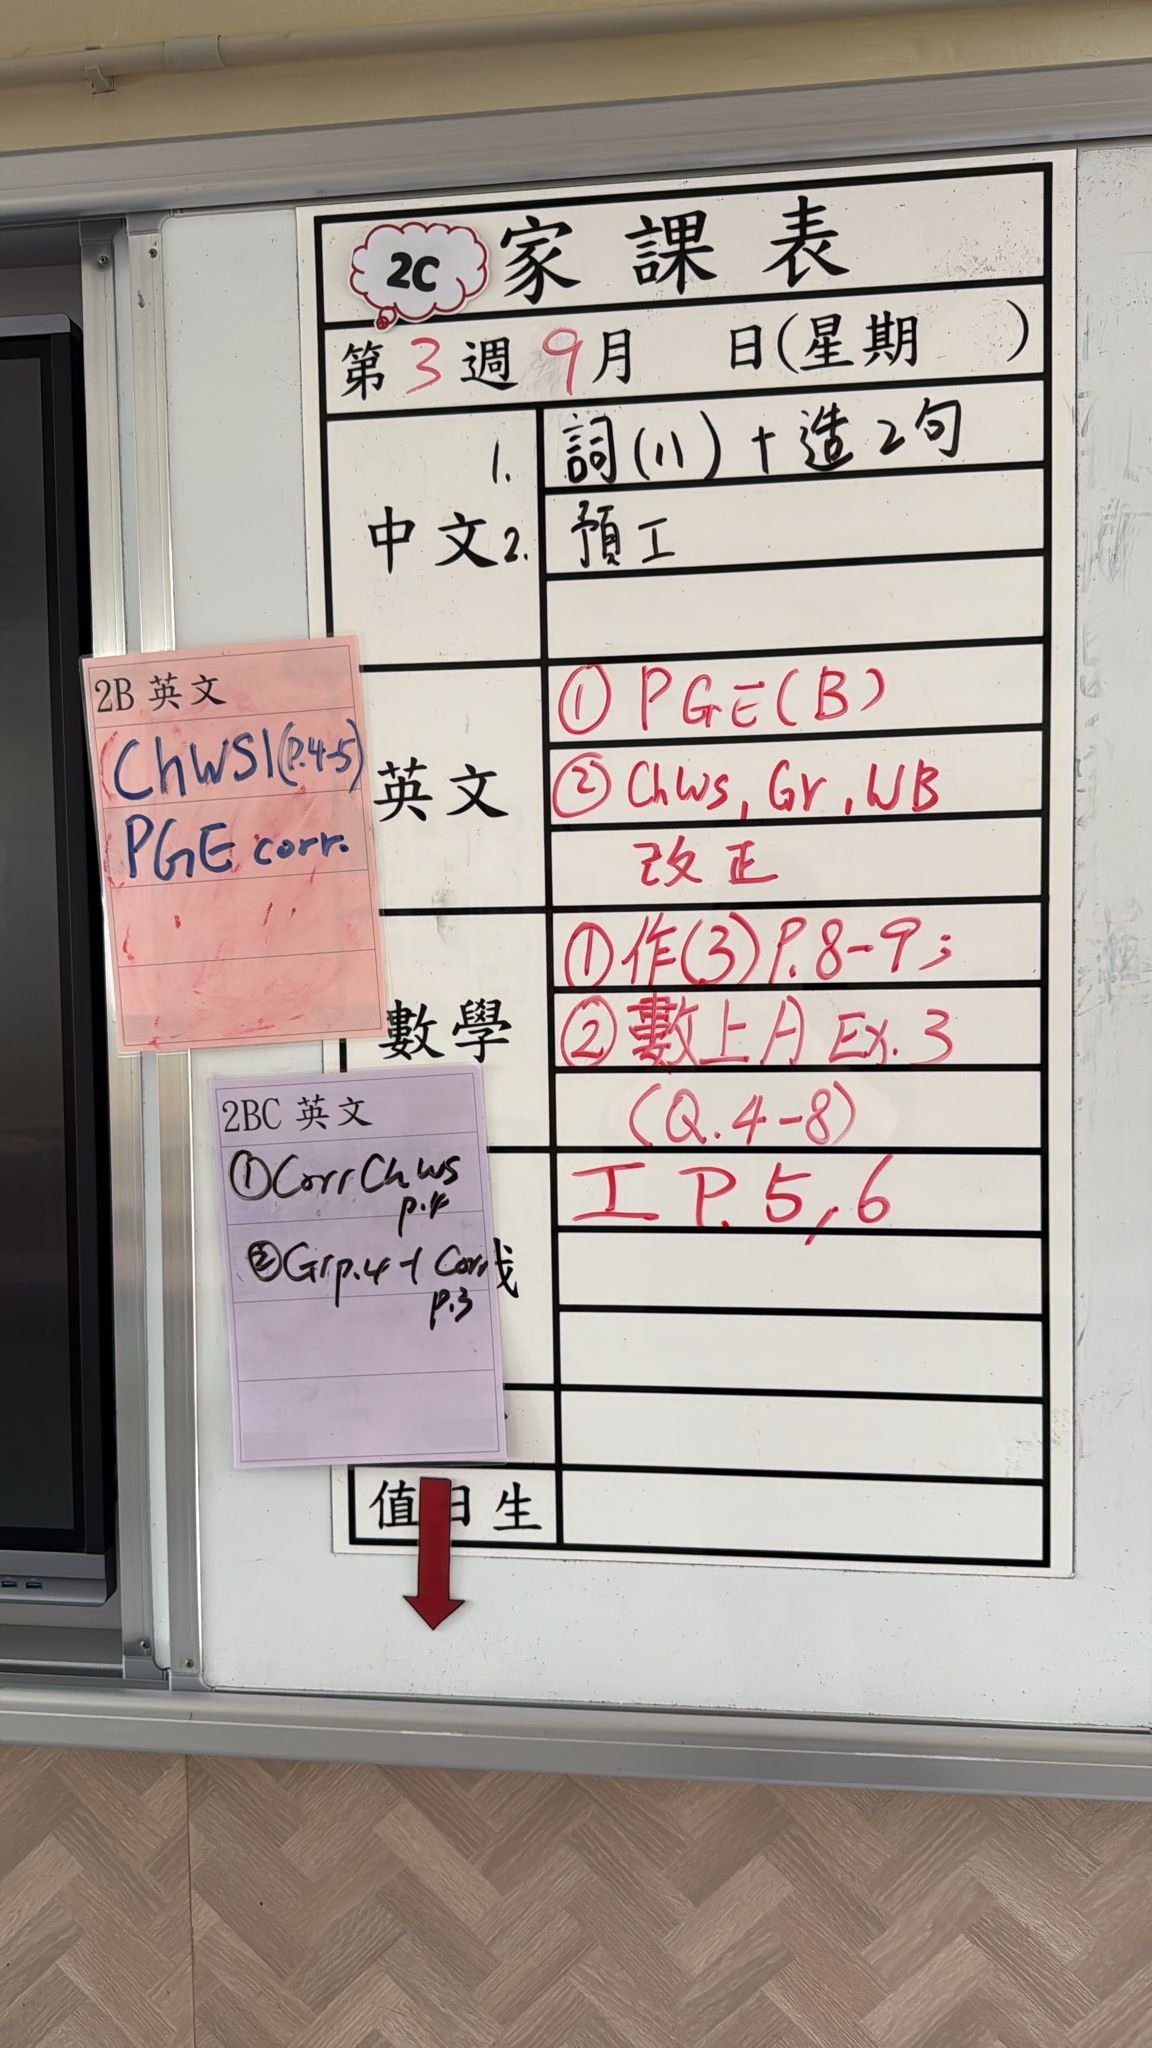 2C 家課表
第 3 週 9 月 日(星期 )
中文
1. 詞(八) + 造2句
2. 預工
英文
① PGE(B)
② Chws, Gr, WB
改正
數學
① 作(3) P.8-9;
② 數上A Ex. 3
(Q.4-8)
工 P. 5, 6
值日生
2B 英文
ChWS1(P.4-5)
PGE corr.
2BC 英文
① Corr Ch WS
p.4
② Gr p.4 + Corr
p.3